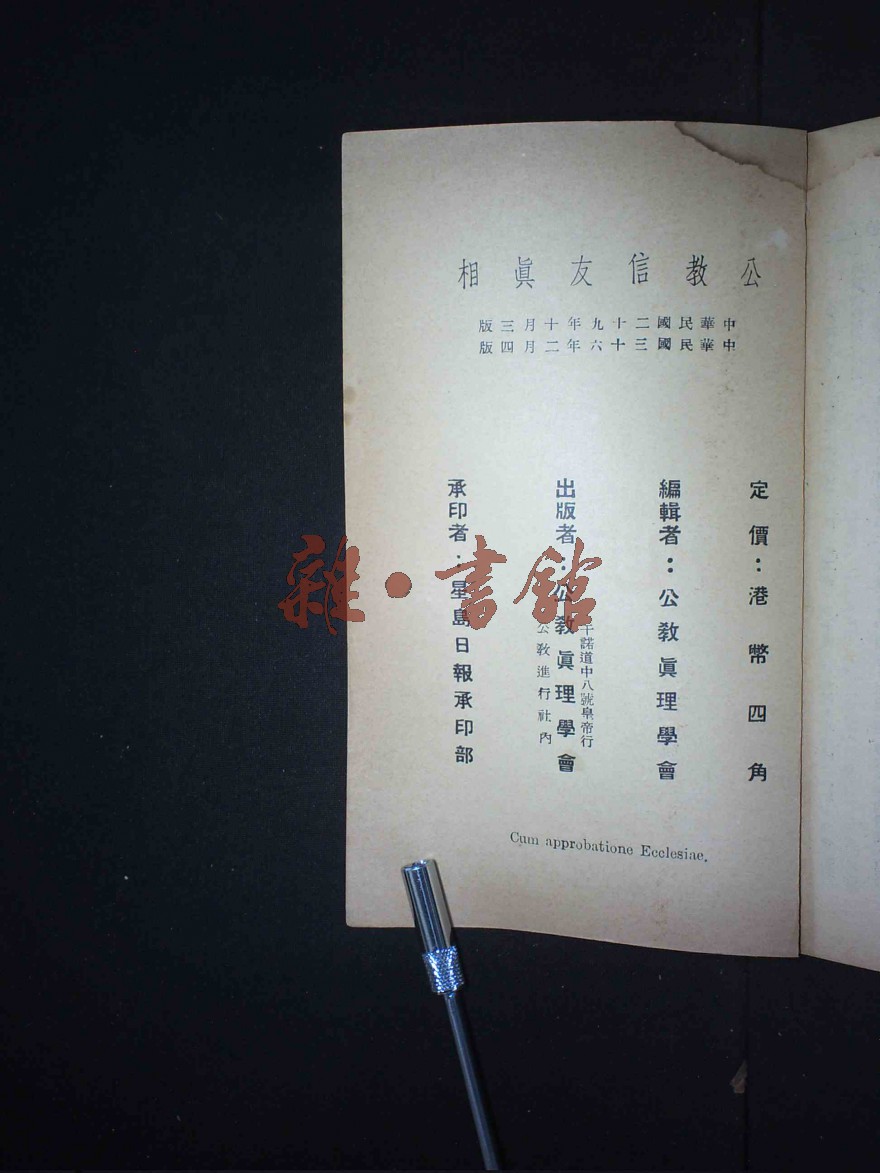 公教信友眞相
中華民國二十九年十月三版
中華民國三十六年二月四版
定價：港幣四角
編輯者：公敎眞理學會
出版者：公敎眞理學會
干諾道中八號皇帝行
公敎進行社內
承印者：星島日報承印部
Cum approbatione Ecclesiae.
雜·書館